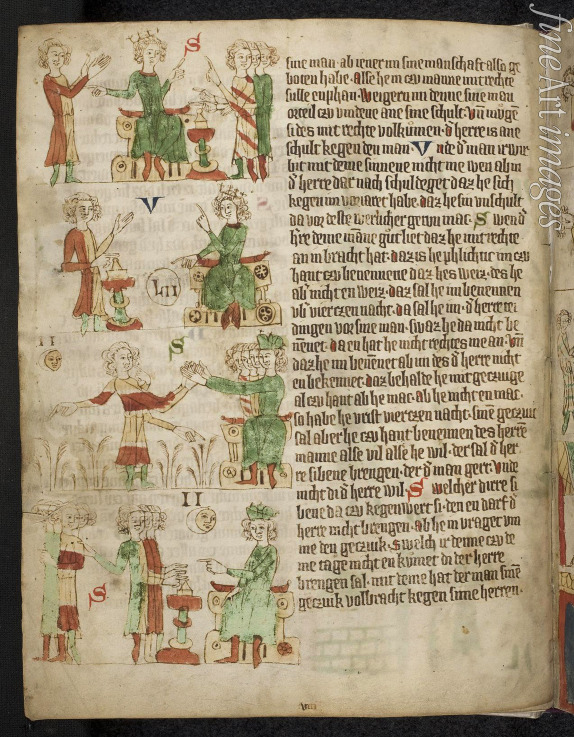 sine man· ab iener im sine manschaft also ge
boten habe· Alse hem czu manne mit rechte
sulle enphan· Weigern im denne sine man
orteil czu vindene ane sine schult· Vñ muge
si des mit rechte volkumen· d herre is ane
schult kegen den man· Vnde d man irwir
bit mit deme sinnene nicht me wen ab in
d herre dar nach schuldeget daz he sich
kegen im vorjaret habe· daz he sin vnschult
da vor deste werlicher gerun mac· Swen d
h're deme manne gut liet daz he mit rechte
an in bracht hat· daz is he phlichtic im czu
hant czu benennene daz hes weiz· des he
ab' nicht en weiz· daz sal he im benennen
vb' viertzen nacht· da sal he im d herre tei
dingen vor sine man· Swaz he da nicht be
nennet· da en hat he nicht rechtes me an· Vñ
daz he im benennet ab im des d herre nicht
en bekennet· daz behalde he mit geczuge
al czu hant ab he mac· ab he nicht en mac·
so habe he virst viertzen nacht· sine geczuge
sal aber he czu hant benennen des herren
manne alse vil alse he wil· der sal d her
re sibene brengen· der d man gert· vnde
nicht di d herre wil· Swelcher dirre si
bene da czu kegenwert si· den en darf d
herre nicht brengen· ab he in vraget vm
me den geczuk· Swelch ir denne czu de
me tage nicht en kumet di der herre
brengen sal· mit deme hat der man sine
geczuk vollbracht kegen sime herren·
S
V
LII
II
S
II
S
fineArtimages